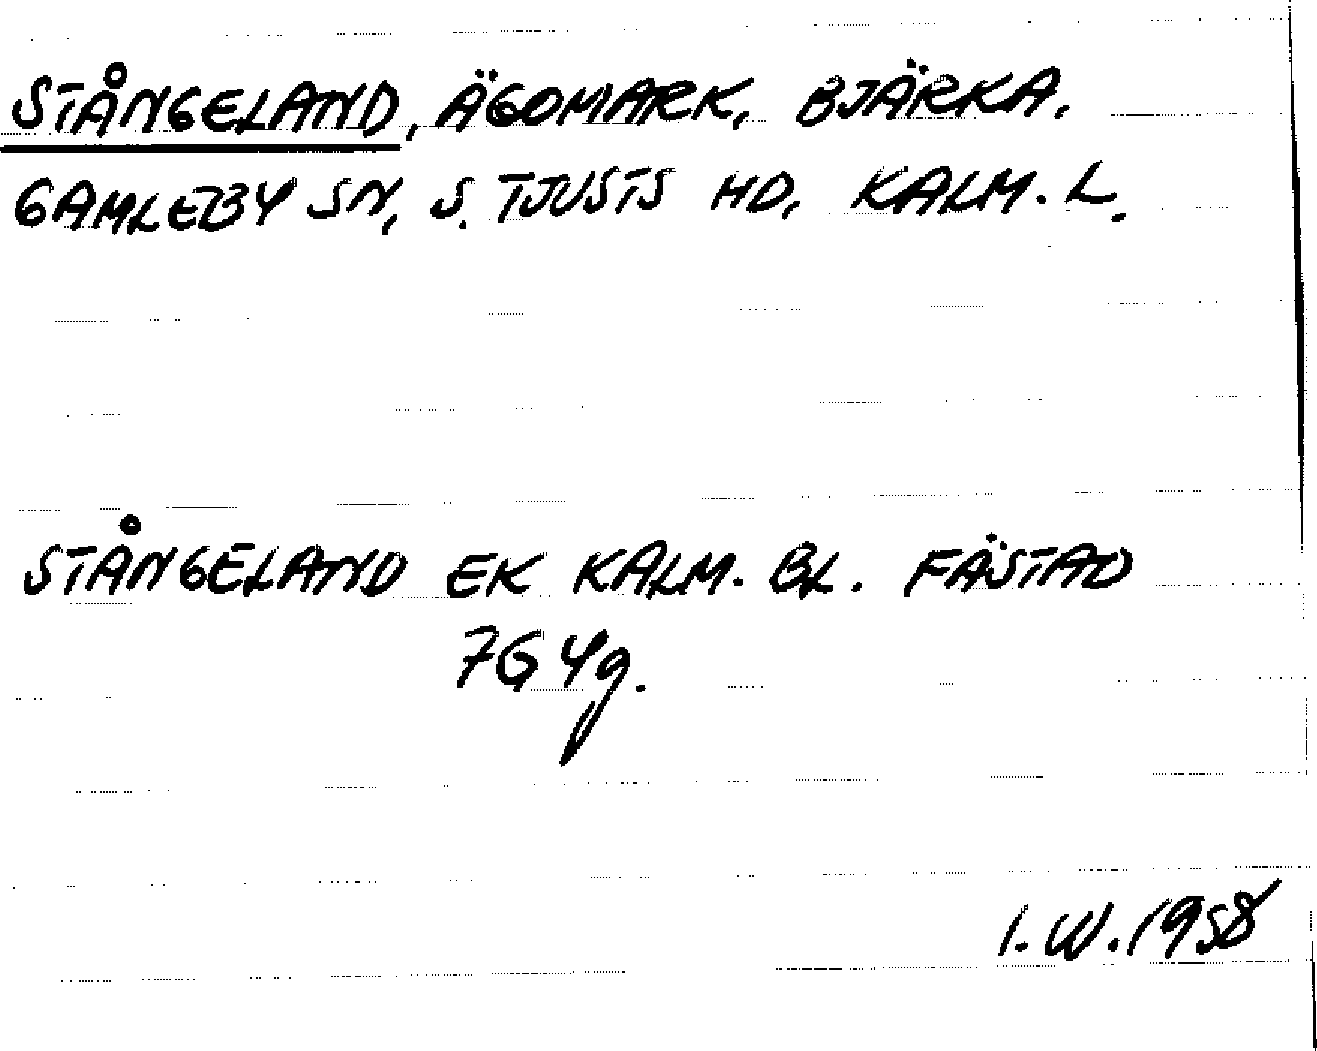 STÅNGELAND, ÄGOMARK, BJÄRKA,
GAMLEBY SN, S. TJUSTS HD, KALM. L.
STÅNGELAND EK KALM. BL. FÄSTAD
7G 4g.
I. W. 1958